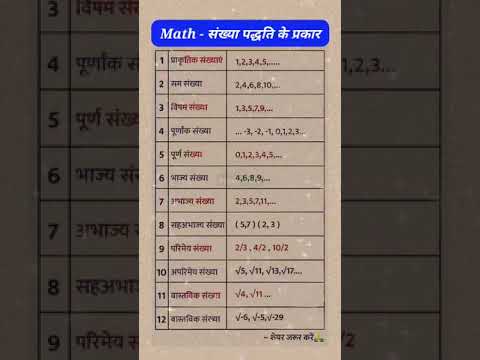 Math - संख्या पद्धति के प्रकार
1 प्राकृतिक संख्याएं 1,2,3,4,5,.....
2 सम संख्या 2,4,6,8,10,...
3 विषम संख्या 1,3,5,7,9,...
4 पूर्णांक संख्या ... -3, -2, -1, 0,1,2,3...
5 पूर्ण संख्या 0,1,2,3,4,5,...
6 भाज्य संख्या 4,6,8,9,...
7 अभाज्य संख्या 2,3,5,7,11,...
8 सहअभाज्य संख्या ( 5,7 ) ( 2, 3 )
9 परिमेय संख्या 2/3 , 4/2 , 10/2
10 अपरिमेय संख्या √5, √11, √13,√17....
11 वास्तविक संख्या √4, √11 ...
12 वास्तविक संख्या √-6, √-5,√-29
~ शेयर जरूर करें
3 विषम सं
4 पूर्णांक सं
5 पूर्ण संख्
6 भाज्य सं
7 अभाज्य
8 सहअभाज
9 परिमेय सं
1,2,3...